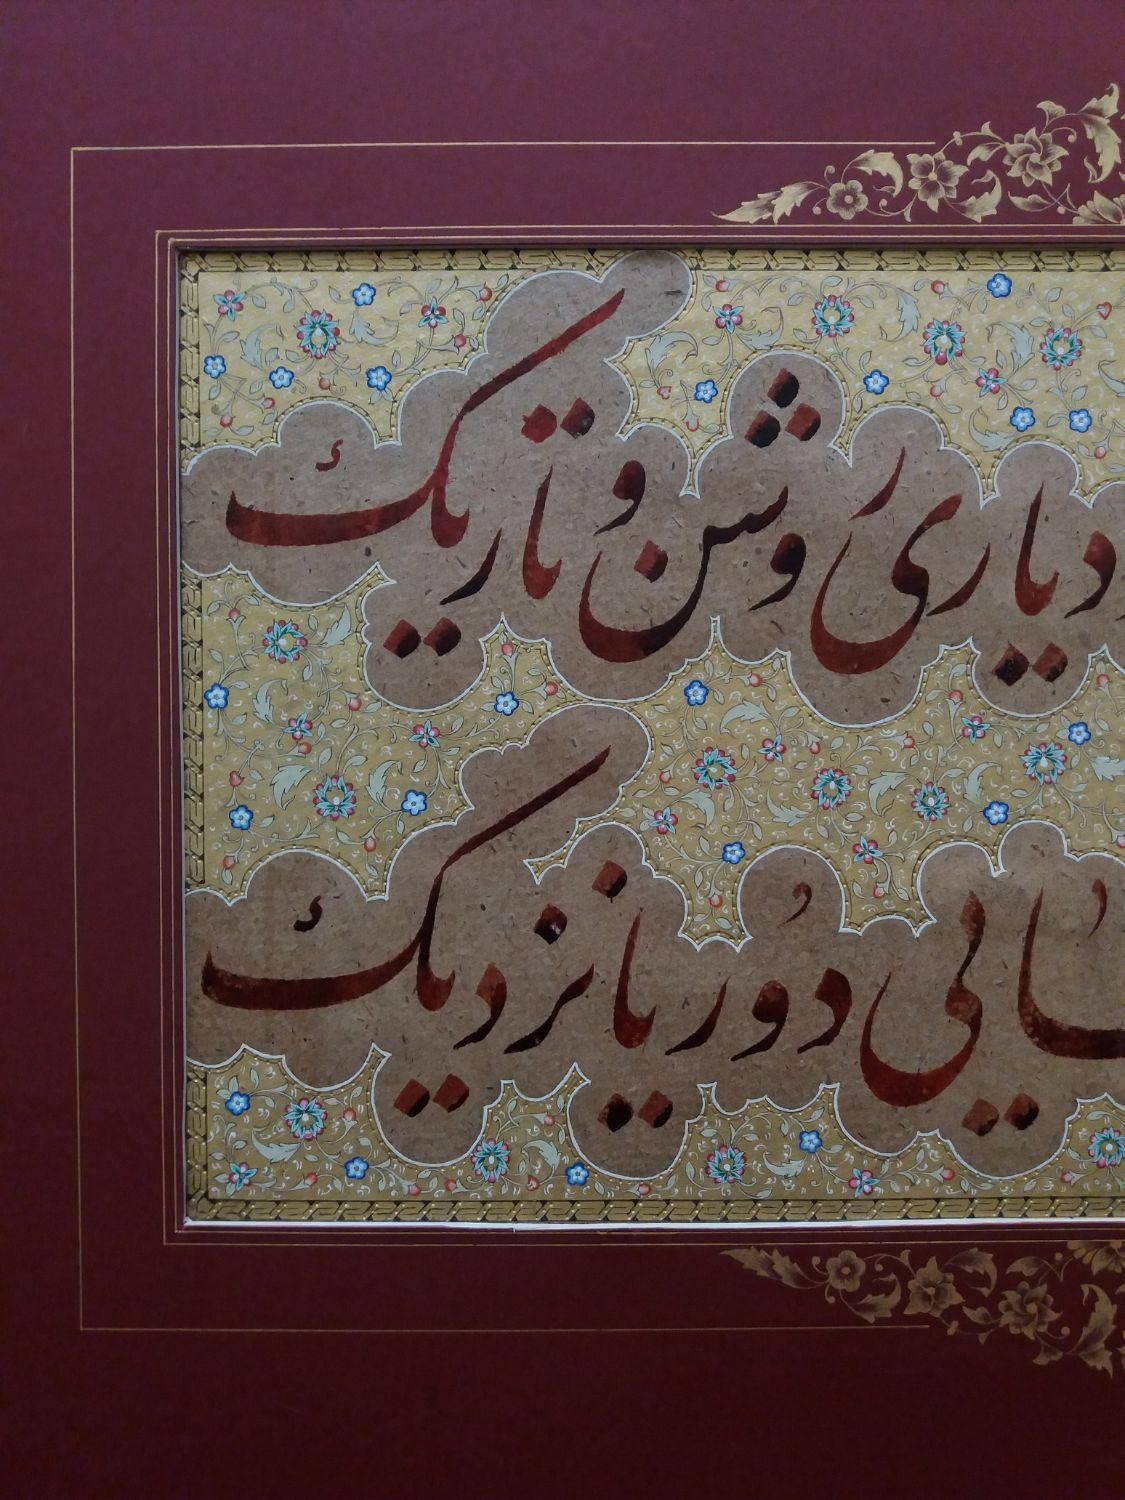 دیاری روشن و تاریک
دُور یا نزدیک